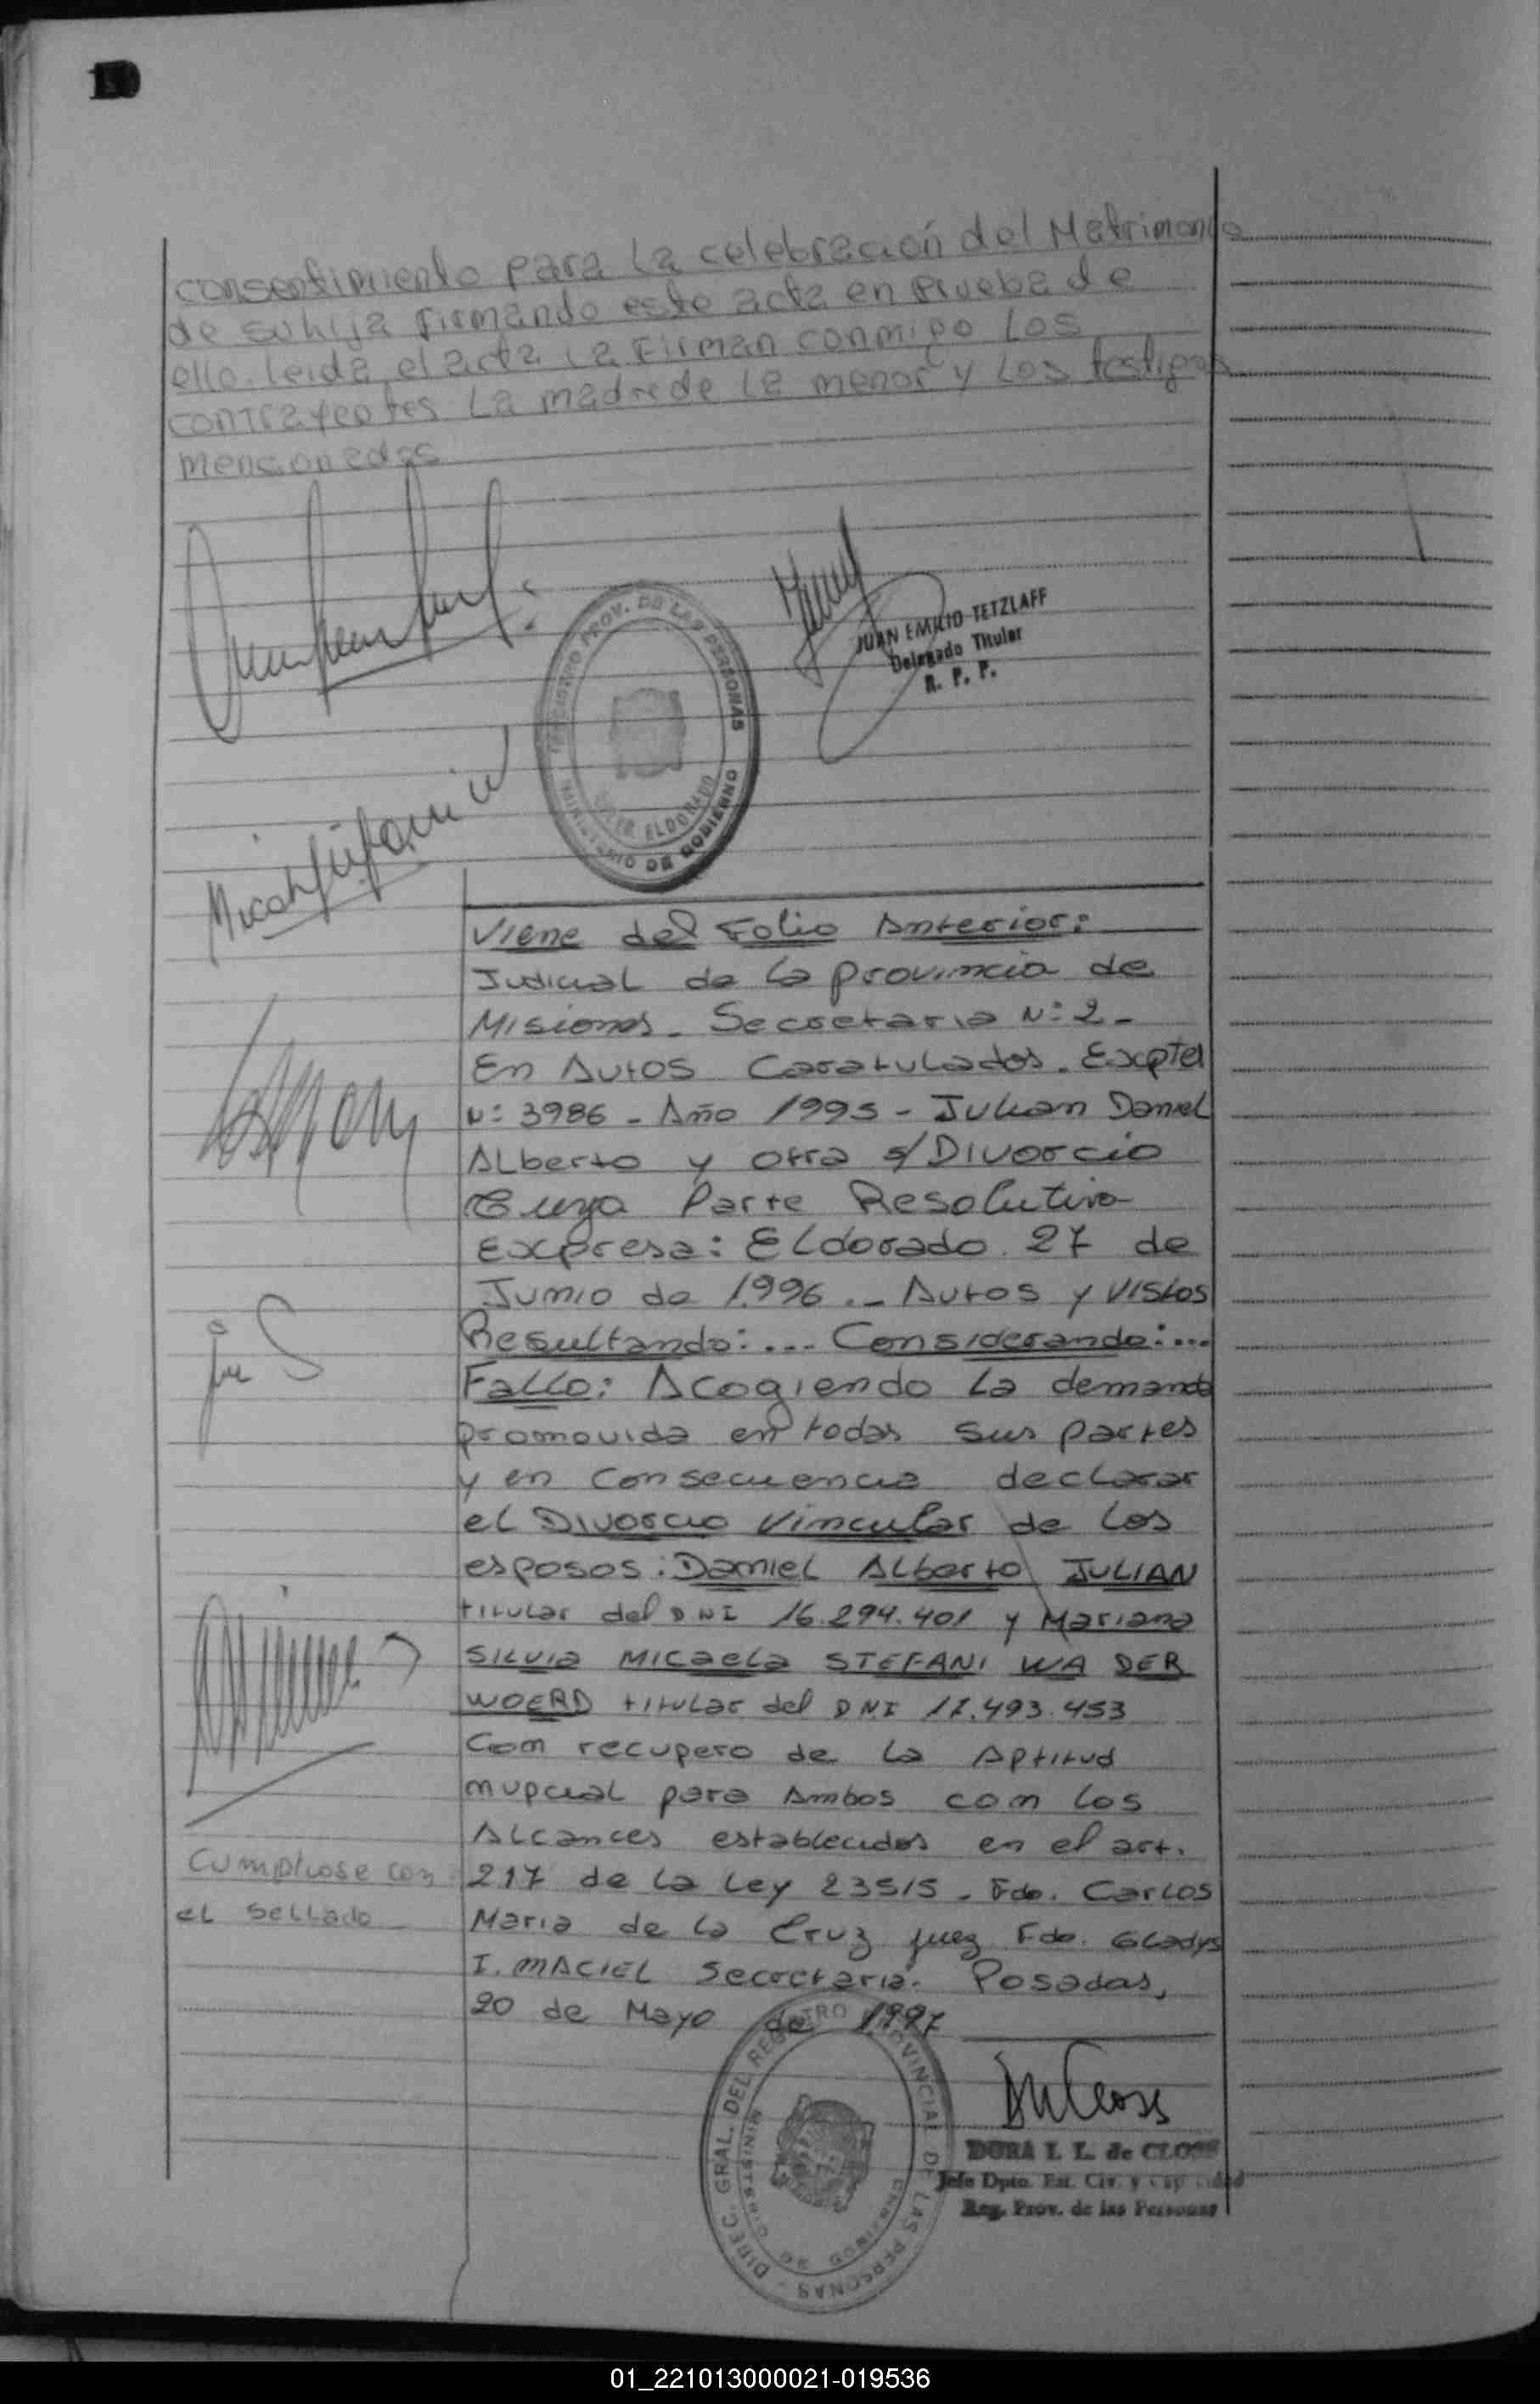 consentimiento para la celebración del Matrimonio
de su hija firmando este acta en prueba de
ello. leida el acta la Firman conmigo los
contrayentes La madre de la menor y los testigos
mencionados
JUAN EMILIO TETZLAFF
Delegado Titular
R. P. P.
REGISTRO PROV. DE LAS PERSONAS
MINISTERIO DE GOBIERNO
ELDORADO
Viene del Folio Anterior:
Judicial de la provincia de
Misiones. Secretaria N: 2 -
En Autos Caratulados. Expte
N: 3986 - Año 1995 - Julian Daniel
Alberto y otra s/Divorcio
Cuya Parte Resolutiva
Expresa: Eldorado 27 de
Junio de 1.996 .- Autos y Vistos
Resultando: ... Considerando: ...
Fallo: Acogiendo la demanda
promovida en todas sus partes
y en consecuencia declarar
el Divorcio Vincular de los
esposos: Daniel Alberto JULIAN
titular del DNI 16.294.401 y Mariana
SILVIA MICAELA STEFANI WA DER
WOERD titular del DNI 17.493.453
Con recupero de la Aptitud
nupcial para Ambos con los
Alcances establecidos en el art.
217 de la Ley 23515 - Fdo. Carlos
Maria de la Cruz juez Fdo. Gladys
I. MACIEL Secretaria. Posadas,
20 de Mayo de 1997
Cumpliose con
el sellado
DIREC. GRAL. DEL REGISTRO PROVINCIAL DE LAS PERSONAS
MINISTERIO DE GOBIERNO
DORA I. L. de CLOSS
Jefe Dpto. Est. Civ. y Capacidad
Reg. Prov. de las Personas
01_221013000021-019536